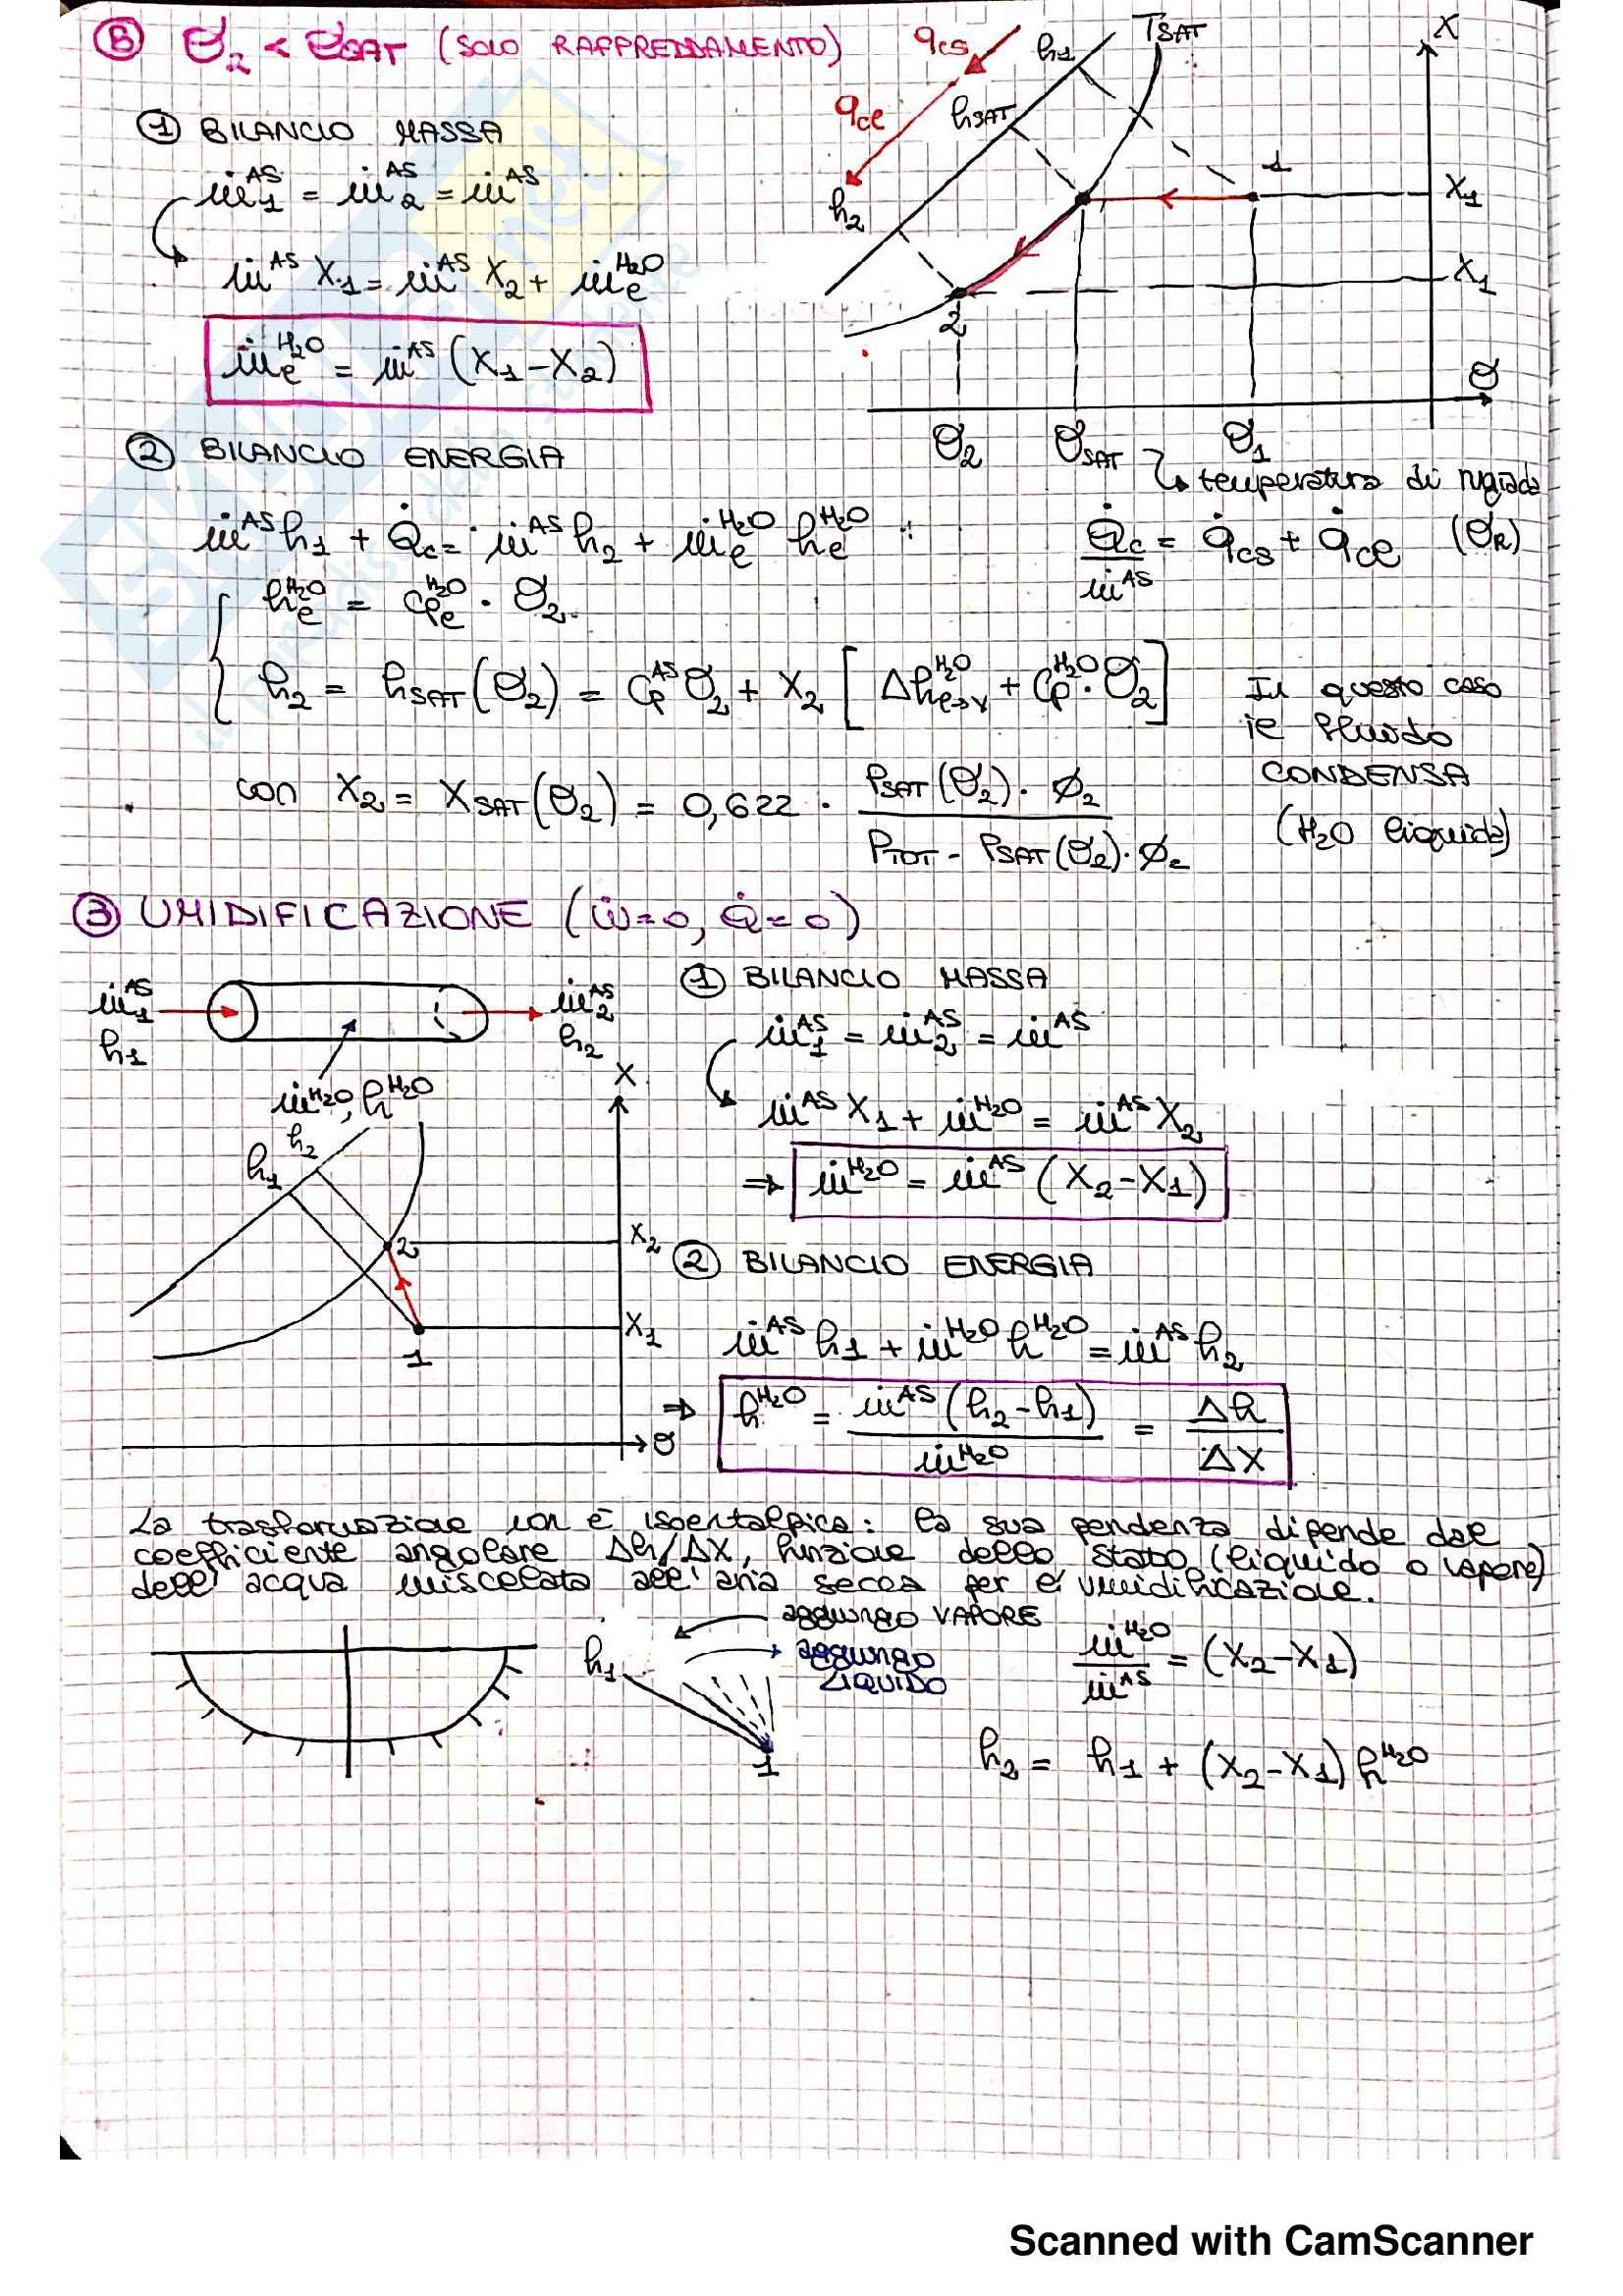 B θ₂ < θSAT (SOLO RAFFREDDAMENTO)
qcs
qce
h1
hSAT
h2
TSAT
X
1
X1
X1
2
θ
θ2 θSAT θ1
↳ temperatura di rugiada
(θR)
① BILANCIO MASSA
ṁ₁^AS = ṁ₂^AS = ṁ^AS
ṁ^AS X1 = ṁ^AS X2 + ṁe^H2O
ṁe^H2O = ṁ^AS (X1-X2)
② BILANCIO ENERGIA
ṁ^AS h1 + Q̇c = ṁ^AS h2 + ṁe^H2O he^H2O
Q̇c / ṁ^AS = q̇cs + q̇ce
he^H2O = cpe^H2O · θ2
h2 = hSAT(θ2) = Cp^AS θ2 + X2 [Δh^H2O e→v + Cp^H2O · θ2]
In questo caso
il fluido
CONDENSA
(H2O liquida)
con X2 = XSAT(θ2) = 0,622 · PSAT(θ2) · φ2 / PTOT - PSAT(θ2) · φ2
③ UMIDIFICAZIONE (Ẇ=0, Q̇=0)
ṁ₁^AS
h1
ṁ₂^AS
h2
ṁ^H2O, h^H2O
X
h2
h1
2
X2
X1
1
θ
① BILANCIO MASSA
ṁ₁^AS = ṁ₂^AS = ṁ^AS
ṁ^AS X1 + ṁ^H2O = ṁ^AS X2
⇒ ṁ^H2O = ṁ^AS (X2-X1)
② BILANCIO ENERGIA
ṁ^AS h1 + ṁ^H2O h^H2O = ṁ^AS h2
⇒ h^H2O = ṁ^AS (h2-h1) / ṁ^H2O = Δh / ΔX
La trasformazione non è isoentalpica: la sua pendenza dipende dal
coefficiente angolare Δh/ΔX, funzione dello stato (liquido o vapore)
dell'acqua miscelata all'aria secca per l'umidificazione.
aggiungo VAPORE
aggiungo
LIQUIDO
h1
1
ṁ^H2O / ṁ^AS = (X2-X1)
h2 = h1 + (X2-X1) h^H2O
Scanned with CamScanner